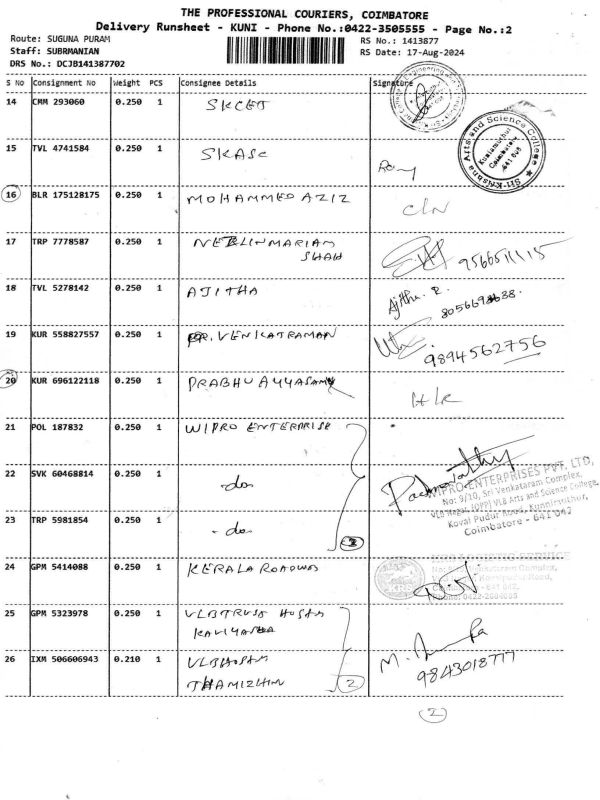 THE PROFESSIONAL COURIERS, COIMBATORE
Delivery Runsheet - KUNI - Phone No.:0422-3505555 - Page No.:2
Route: SUGUNA PURAM
RS No.: 1413877
Staff: SUBRMANIAN
RS Date: 17-Aug-2024
DRS No.: DCJB141387702
S No Consignment No Weight PCS Consignee Details Signature
14 CMM 293060 0.250 1 SKCET
15 TVL 4741584 0.250 1 SKASC
Sri Krishna Arts and Science College
Kuniamuthur
Coimbatore
641 008
16 BLR 175128175 0.250 1 MOHAMMED AZIZ CLN
17 TRP 7778587 0.250 1 MARIAM
SHAH
18 TVL 5278142 0.250 1 AJITHA Ajitha. R.
19 KUR 558827557 0.250 1 DR. VENKATRAMAN 9894562756
20 KUR 696122118 0.250 1 PRABHU AYYASAMY
21 POL 187832 0.250 1 WIPRO ENTERPRISE
22 SVK 60468814 0.250 1 -do-
WIPRO ENTERPRISES PVT. LTD,
No: 9/10, Sri Venkataram Complex,
VLB Nagar, (OPP) VLB Arts and Science College,
Kovai Pudur Road, Kuniamuthur,
Coimbatore - 641 042
23 TRP 5981854 0.250 1 -do- 2
24 GPM 5414088 0.250 1 KERALA ROADWAYS
25 GPM 5323978 0.250 1 VLB TRUST HOSTEL
26 IXM 506606943 0.210 1
THAMIZHINI 2
M. 9843018777
2